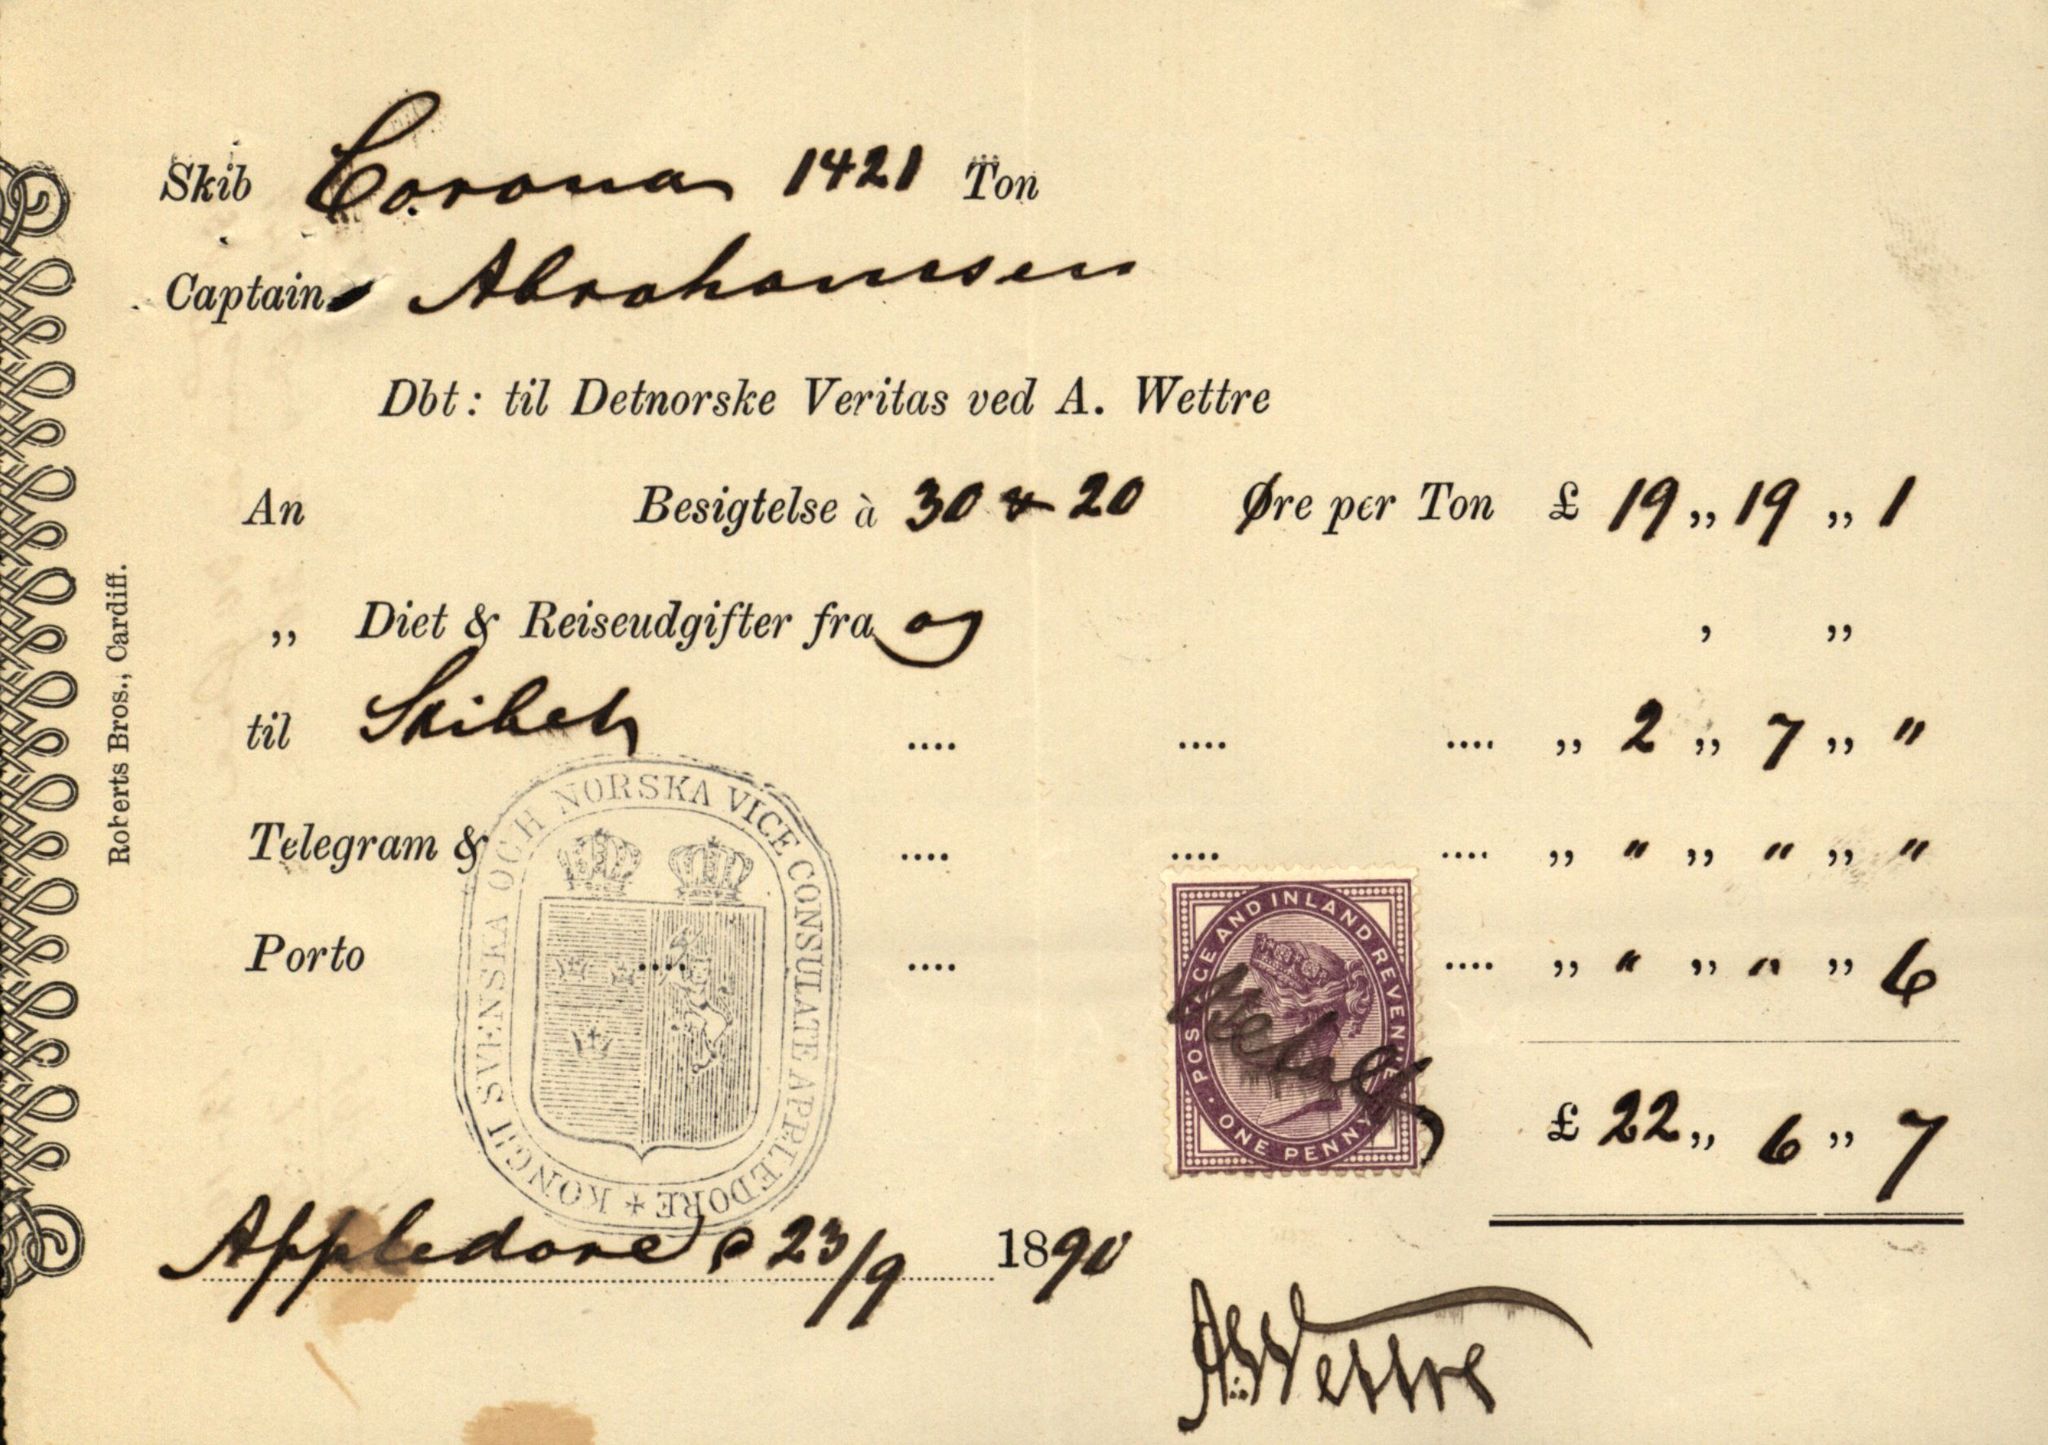 Skib Corona 1421 Ton
Captain Abrahamsen
Dbt: til Detnorske Veritas ved A. Wettre
An Besigtelse à 30 & 20 Øre per Ton £ 19 „ 19 „ 1
„ Diet & Reiseudgifter fra og , „
til Skibet .... .... .... „ 2 „ 7 „ "
Telegram & .... .... .... „ " „ " „ "
Porto .... .... .... „ " „ " „ 6
£ 22 „ 6 „ 7
Appledore d 23/9 1890
A. Wettre
Roberts Bros., Cardiff.
KONGL SVENSKA OCH NORSKA VICE CONSULATE APPLEDORE *
POSTAGE AND INLAND REVENUE
ONE PENNY